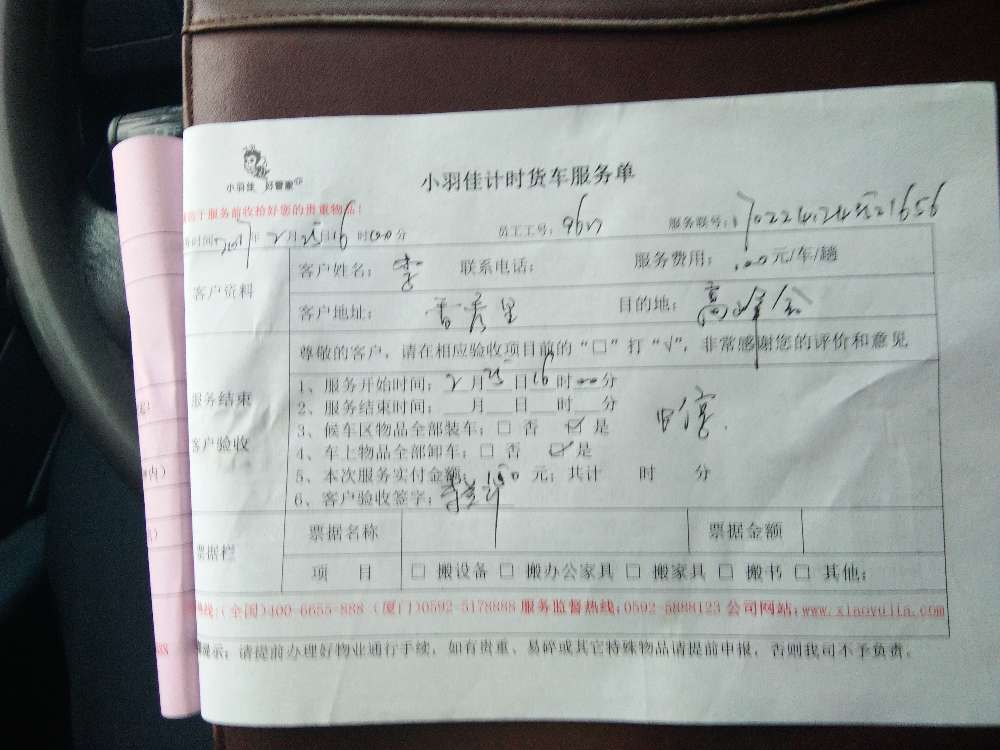 小羽佳 好管家
小羽佳计时货车服务单
于服务前收拾好您的贵重物品！
时间: 2017年2月25日16时00分 员工工号: 服务联号:
客户资料
客户姓名: 李 联系电话: 服务费用: 元/车/趟
客户地址: 香秀里 目的地: 高峰
尊敬的客户，请在相应验收项目前的“□”打“√”，非常感谢您的评价和意见
服务结束
客户验收
1、服务开始时间: 2月25日16时00分
2、服务结束时间: 月 日 时 分
3、候车区物品全部装车: □ 否 ☑ 是
4、车上物品全部卸车: □ 否 ☑ 是
5、本次服务实付金额: 元; 共计 时 分
6、客户验收签字:
票据栏
票据名称 票据金额
项 目 □ 搬设备 □ 搬办公家具 □ 搬家具 □ 搬书 □ 其他:
热线:(全国)400-6655-888 (厦门)0592-5178888 服务监督热线:0592-5888123 公司网站:www.xiaoyujia.com
提示: 请提前办理好物业通行手续，如有贵重、易碎或其它特殊物品请提前申报，否则我司不予负责。